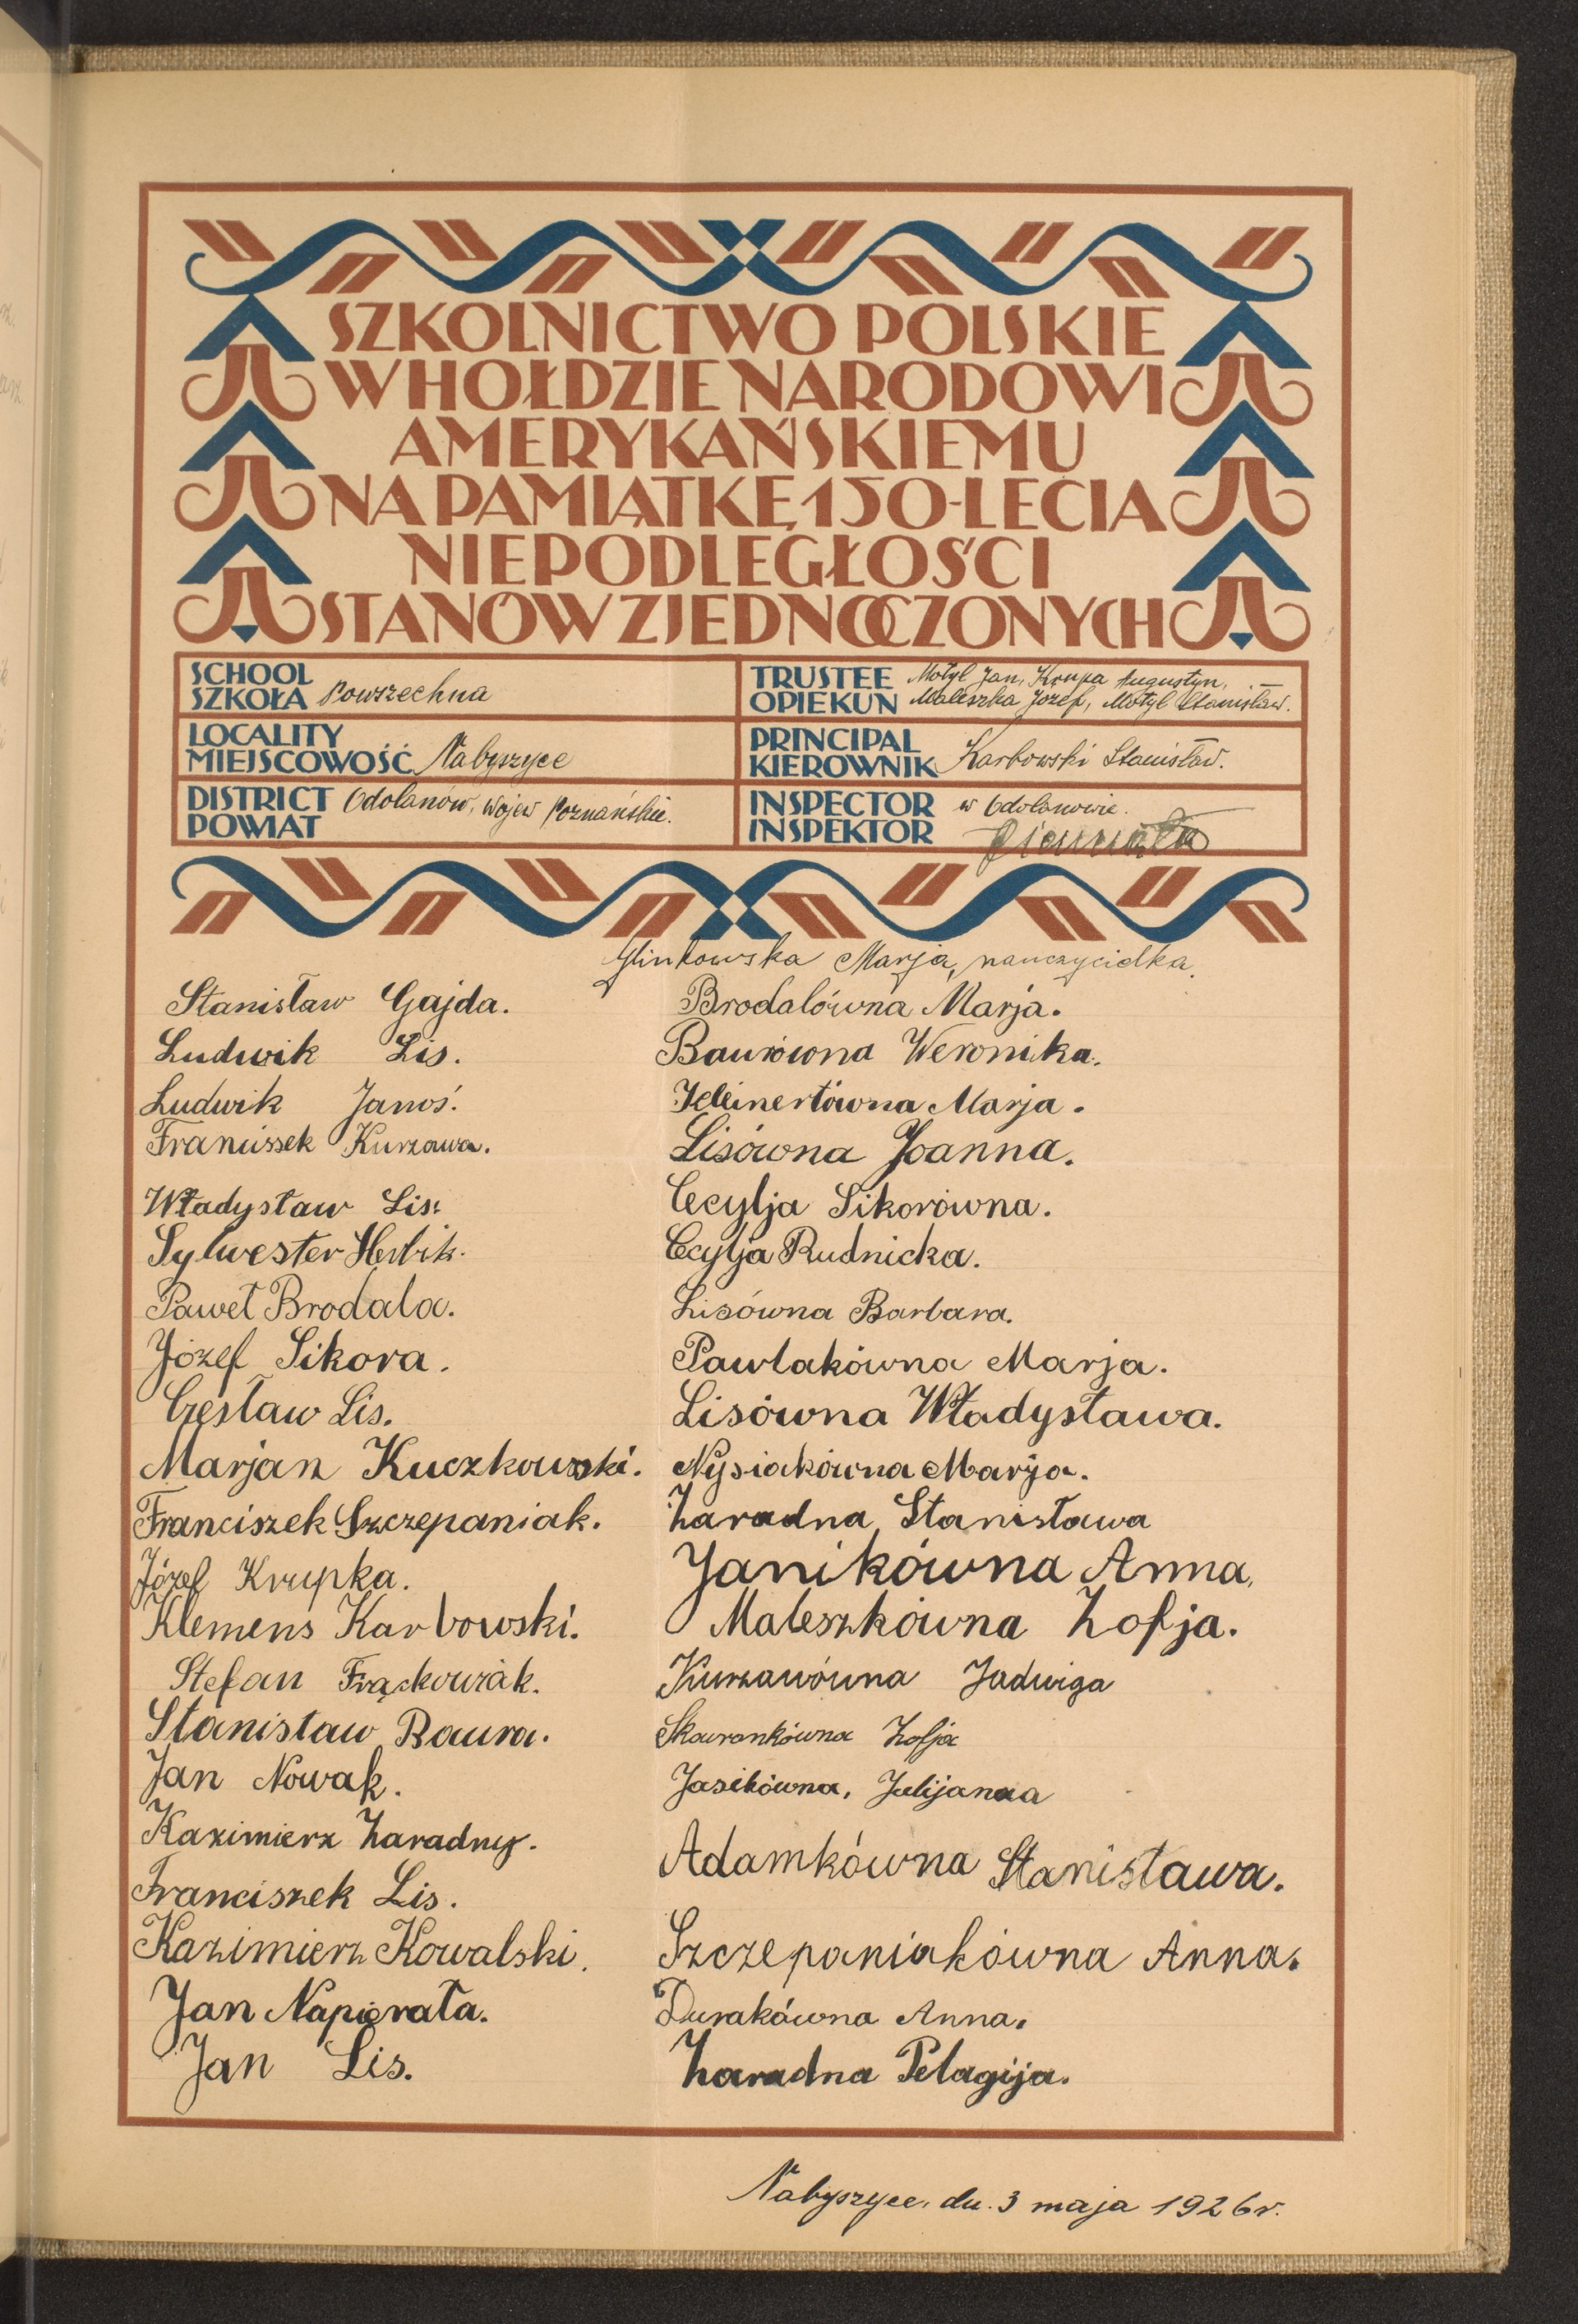 SZKOLNICTWO POLSKIE
W HOŁDZIE NARODOWI
AMERYKAŃSKIEMU
NA PAMIĄTKĘ 150-LECIA
NIEPODLEGŁOŚCI
STANÓW ZJEDNOCZONYCH
SCHOOL
SZKOŁA Powszechna
LOCALITY
MIEJSCOWOŚĆ Nabyszyce
DISTRICT Odolanów, Wojew Poznańskie.
POWIAT
TRUSTEE Motyl Jan, Krupa Augustyn,
OPIEKUN Maleszka Józef, Motyl Stanisław.
PRINCIPAL
KIEROWNIK Karbowski Stanisław.
INSPECTOR w Odolanowie.
INSPEKTOR
Glinkowska Marja, nauczycielka.
Stanisław Gajda.
Ludwik Lis.
Ludwik Janoś.
Franciszek Kurzawa.
Władysław Lis.
Sylwester Herbik.
Paweł Brodala.
Józef Sikora.
Czesław Lis.
Marjan Kuczkowski.
Franciszek Szczepaniak.
Józef Krupka.
Klemens Karbowski.
Stefan Frąckowiak.
Stanisław Baura.
Jan Nowak.
Kazimierz Zaradny.
Franciszek Lis.
Kazimierz Kowalski.
Jan Napierała.
Jan Lis.
Brodalówna Marja.
Baurówna Weronika.
Kleinertówna Marja.
Lisówna Joanna.
Cecylja Sikorówna.
Cecylja Rudnicka.
Lisówna Barbara.
Pawlakówna Marja.
Lisówna Władysława.
Nysiakówna Marja.
Zaradna, Stanisława
Janikówna Anna,
Maleszkówna Zofja.
Kurzawówna Jadwiga
Skowronkówna Zofja
Jasikówna, Julijanna
Adamkówna Stanisława.
Szczepaniakówna Anna.
Durakówna Anna.
Zaradna Pelagija.
Nabyszyce, dn. 3 maja 1926 r.